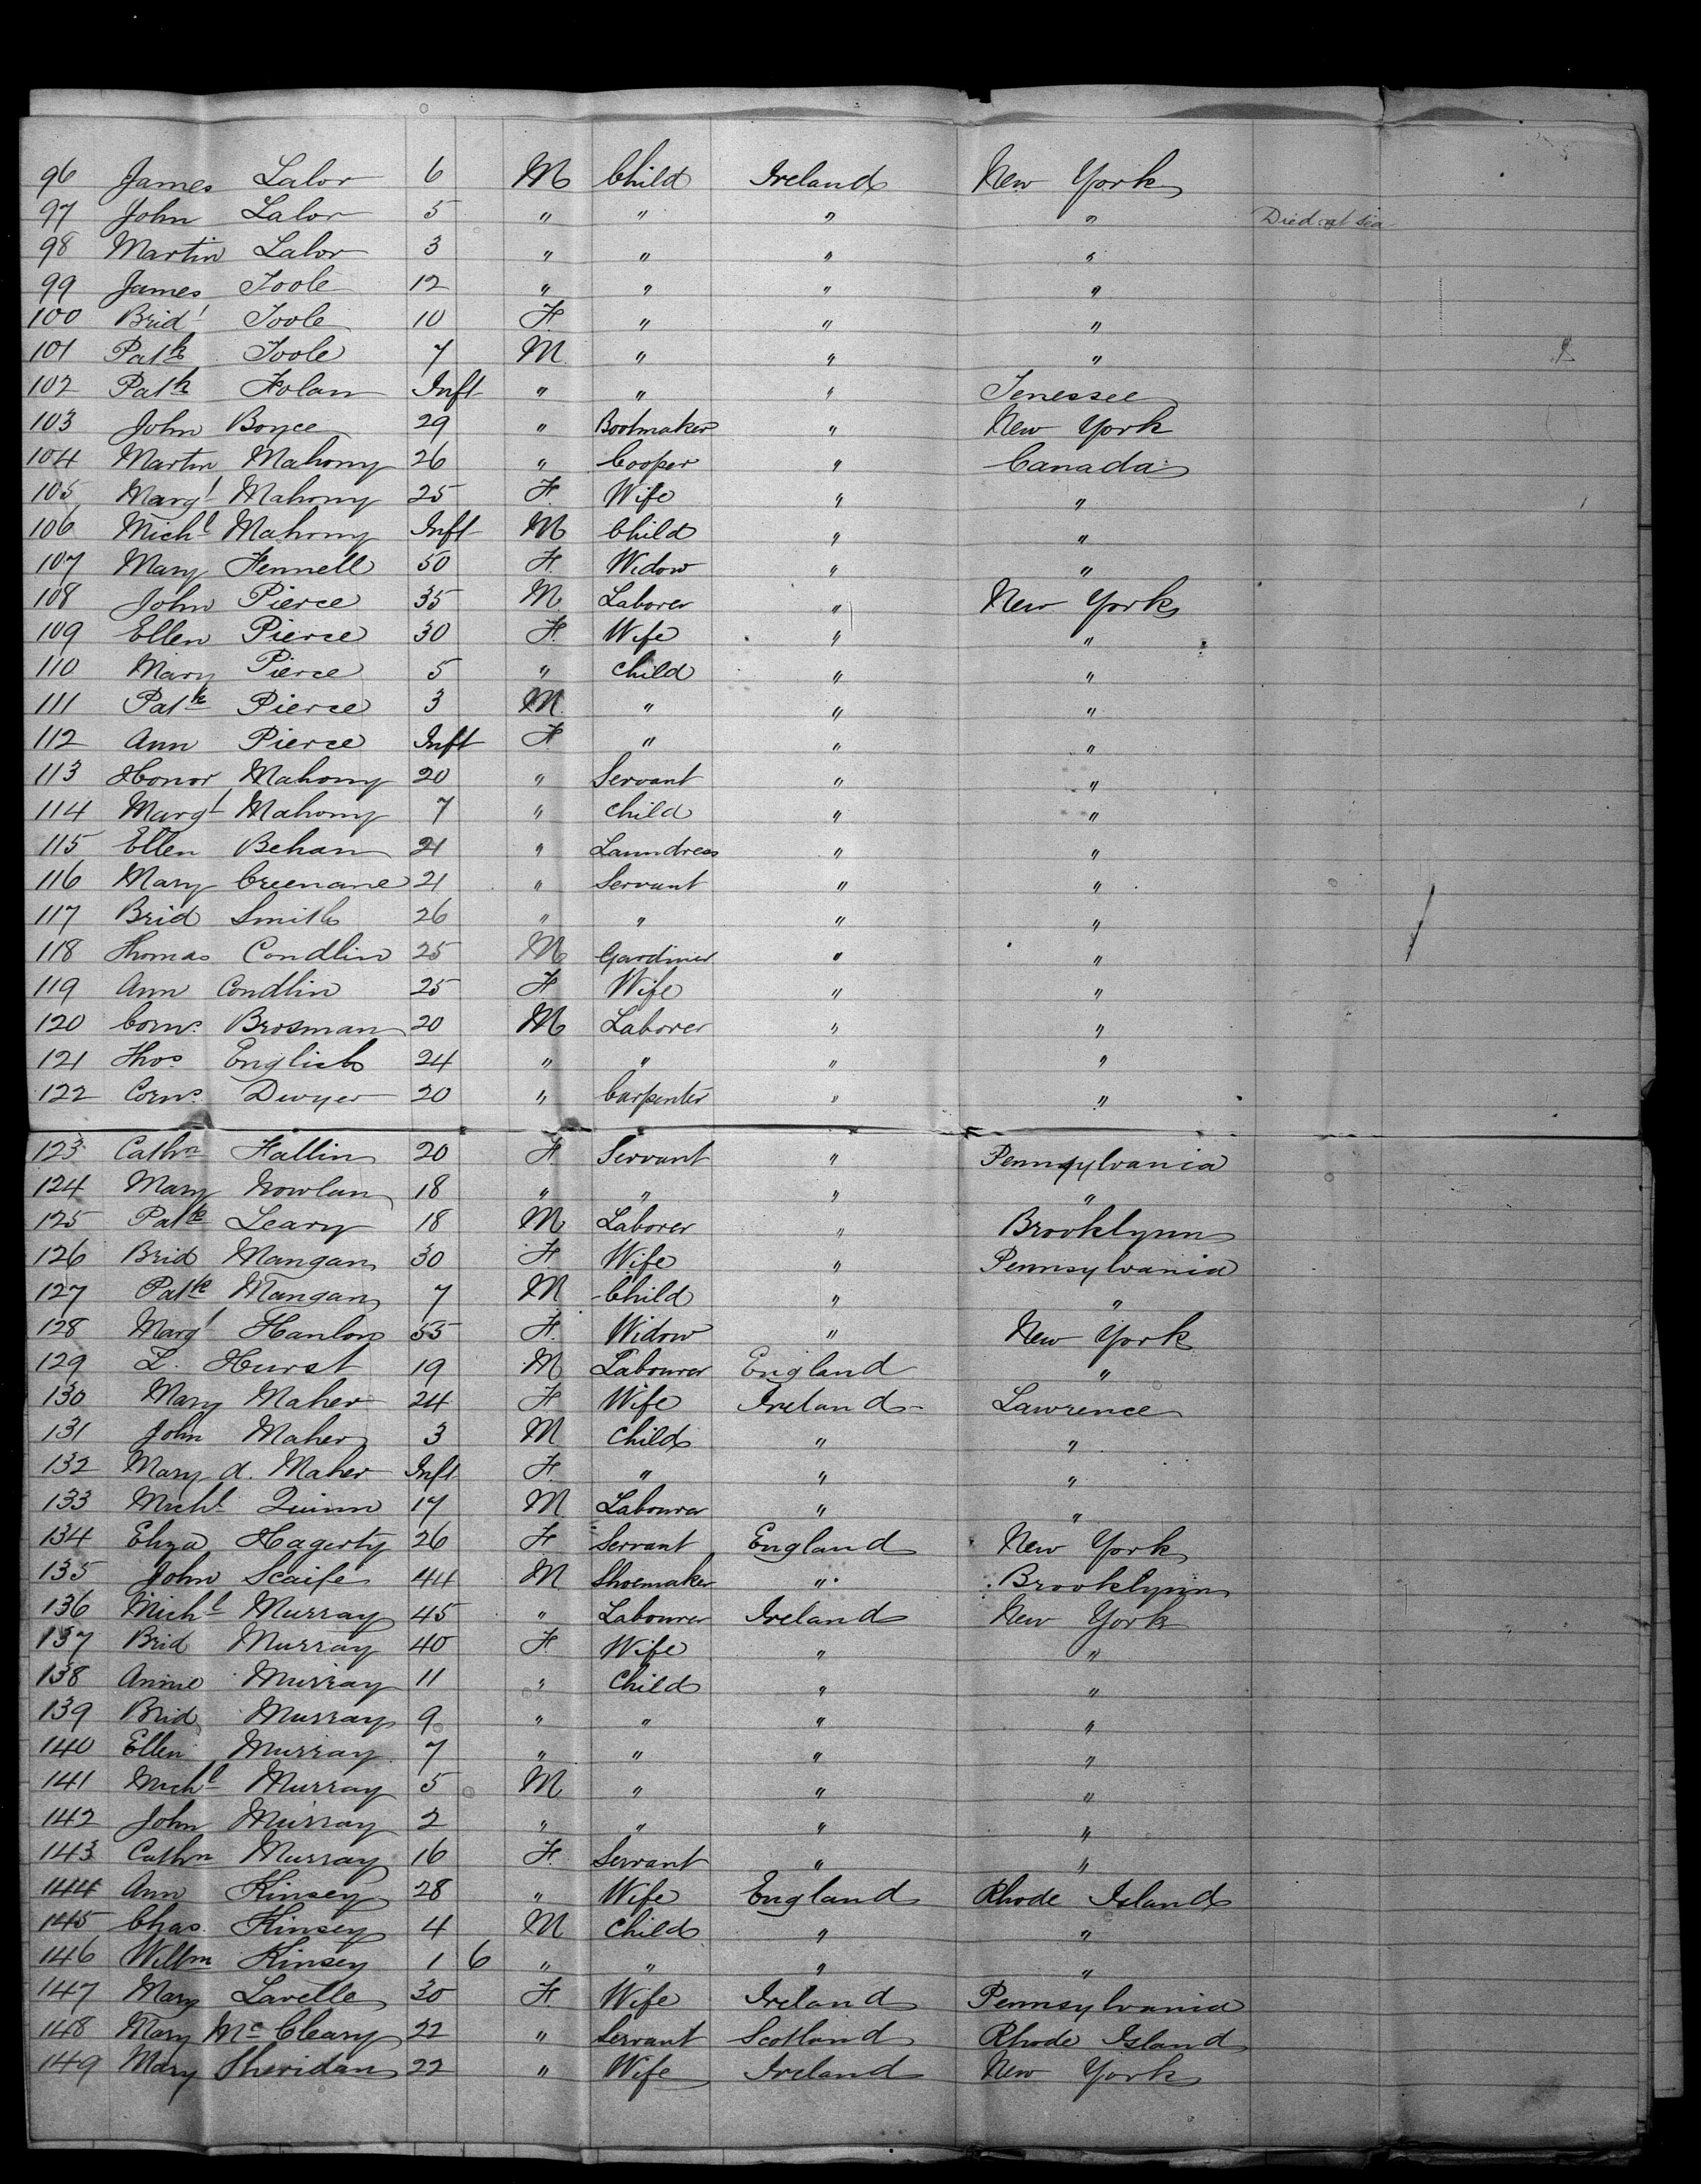 96 James Lalor 6 M Child Ireland New York
97 John Lalor 5 " " " " Died at sea
98 Martin Lalor 3 " " " "
99 James Toole 12 " " " "
100 Brid^t Toole 10 F. " " "
101 Pat^k Toole 7 M " " "
102 Pat^k Folan Inft " " " Tenessee
103 John Boyce 29 " Bootmaker " New York
104 Martin Mahony 26 " Cooper " Canada
105 Marg^t Mahony 25 F. Wife " "
106 Mich^l Mahony Inft M Child " "
107 Mary Fennell 50 F. Widow " "
108 John Pierce 35 M Laborer " New York
109 Ellen Pierce 30 F. Wife " "
110 Mary Pierce 5 " Child " "
111 Pat^k Pierce 3 M " " "
112 Ann Pierce Inft F " " "
113 Honor Mahony 20 " Servant " "
114 Marg^t Mahony 7 " Child " "
115 Ellen Behan 21 " Laundress " "
116 Mary Creenane 21 " Servant " "
117 Brid Smith 26 " " " "
118 Thomas Condlin 25 M Gardiner " "
119 Ann Condlin 25 F Wife " "
120 Corn^s. Brosman 20 M Laborer " "
121 Tho^s. English 24 " " " "
122 Corn^s. Dwyer 20 " Carpenter " "
123 Cath^n Fallin 20 F. Servant " Pennsylvania
124 Mary Nowlan 18 " " " "
125 Pat^k Leary 18 M Laborer " Brooklynn
126 Brid Mangan 30 F Wife " Pennsylvania
127 Pat^k Mangan 7 M Child " "
128 Marg^t Hanlon 55 F. Widow " New York
129 L. Hurst 19 M Labourer England "
130 Mary Maher 24 F Wife Ireland Lawrence
131 John Maher 3 M Child " "
132 Mary A. Maher Inft F. " " "
133 Mich^l Quinn 17 M Labourer " "
134 Eliza Hagerty 26 F Servant England New York
135 John Scaife 44 M Shoemaker " Brooklynn
136 Mich^l Murray 45 " Labourer Ireland New York
137 Brid Murray 40 F. Wife " "
138 Annie Murray 11 " Child " "
139 Brid Murray 9 " " " "
140 Ellen Murray 7 " " " "
141 Mich^l Murray 5 M " " "
142 John Murray 2 " " " "
143 Cath^n Murray 16 F. Servant " "
144 Ann Kinsey 28 " Wife England Rhode Island
145 Chas. Kinsey 4 M Child " "
146 Will^m Kinsey 1 6 " " " "
147 Mary Lavelle 30 F. Wife Ireland Pennsylvania
148 Mary M^c Cleary 22 " Servant Scotland Rhode Island
149 Mary Sheridan 22 " Wife Ireland New York